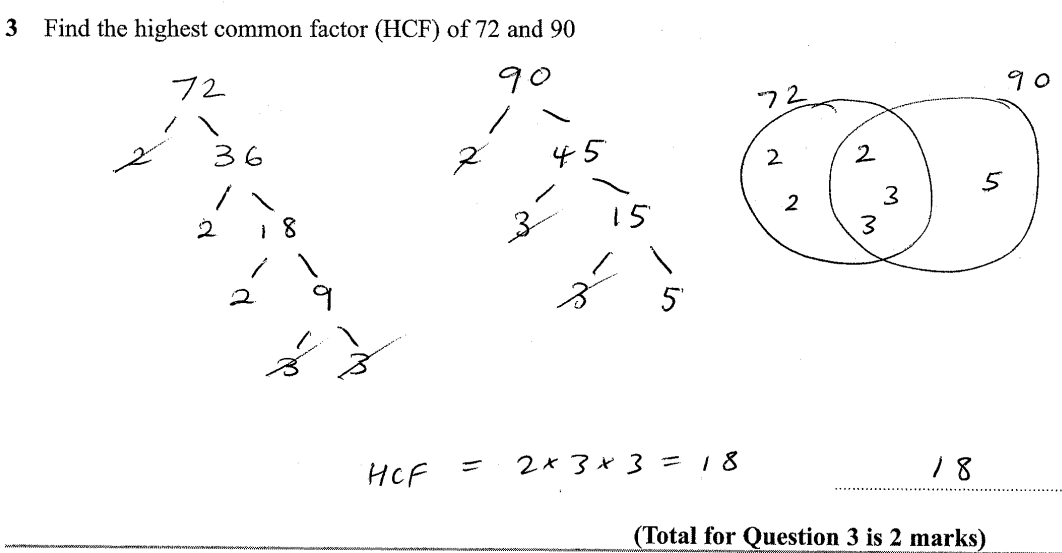 3 Find the highest common factor (HCF) of 72 and 90
72 90 72 90
2 36 2 45 2 2 5
2 18 3 15 2 3 3
2 9 3 5
3 3
HCF = 2 × 3 × 3 = 18 18
(Total for Question 3 is 2 marks)